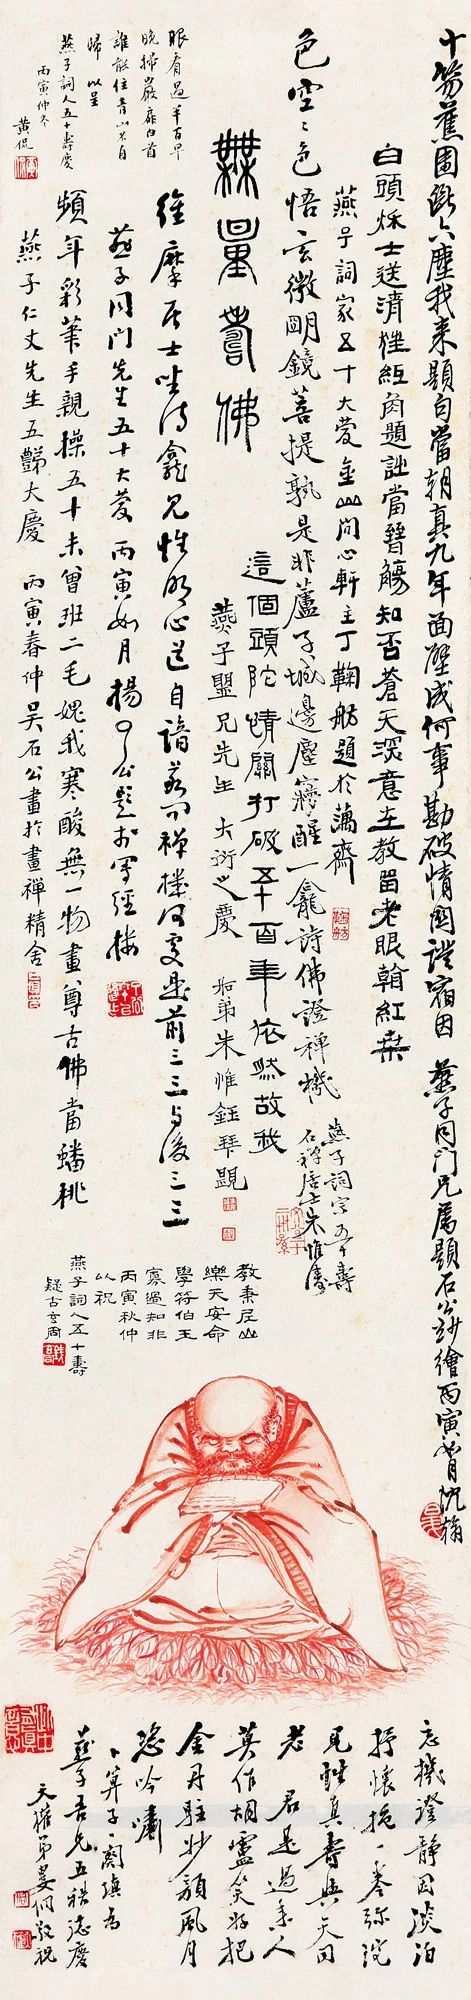 十笏蕉園斷六塵我來題句當朝真九年面壁成何事勘破情關證宿因
燕子同門兄屬題石公妙繪丙寅
白頭烁士送清
燕子詞家五十大慶金山問心軒主丁鞠舫題於蕅齋
色空空色悟玄微明鏡菩提孰是非蘆子城邊塵夢醒一龕詩佛證禪機
燕子詞宗五十壽
石禪居士朱惟
無量壽佛
這個頭陀情關打破五百年依然故我
燕子盟兄先生大衍之慶
如弟朱惟鈺琴題
維摩居士坐詩龕見性明心道自諳若問禪機何處是前三三与後三三
燕子同門先生五十大慶丙寅如月楊了公題於寫經樓
頻年彩筆手親操五十未曾班二毛媿我寒酸無一物畫尊古佛當蟠桃
燕子仁丈先生五豑大慶
丙寅春仲吴石公畫於畫禪精舍
眼看過半百早
晚掃巖扉白首
誰能住青山不自
歸 以呈
燕子詞人五十壽慶
丙寅仲冬
黃侃
教秉尼山
樂天安命
學符伯玉
寡過知非
丙寅秋仲
以祝
燕子詞人五十壽
疑古玄同
忘機澄靜因淡泊
抒懷抱一卷弥陀
見性真壽與天同
老 君是過來人
莫作胡盧笑好把
金丹駐妙顏風月
恣吟嘯
卜算子一闋填為
燕子吾兄五秩誌慶
天權弟姜侗敬祝